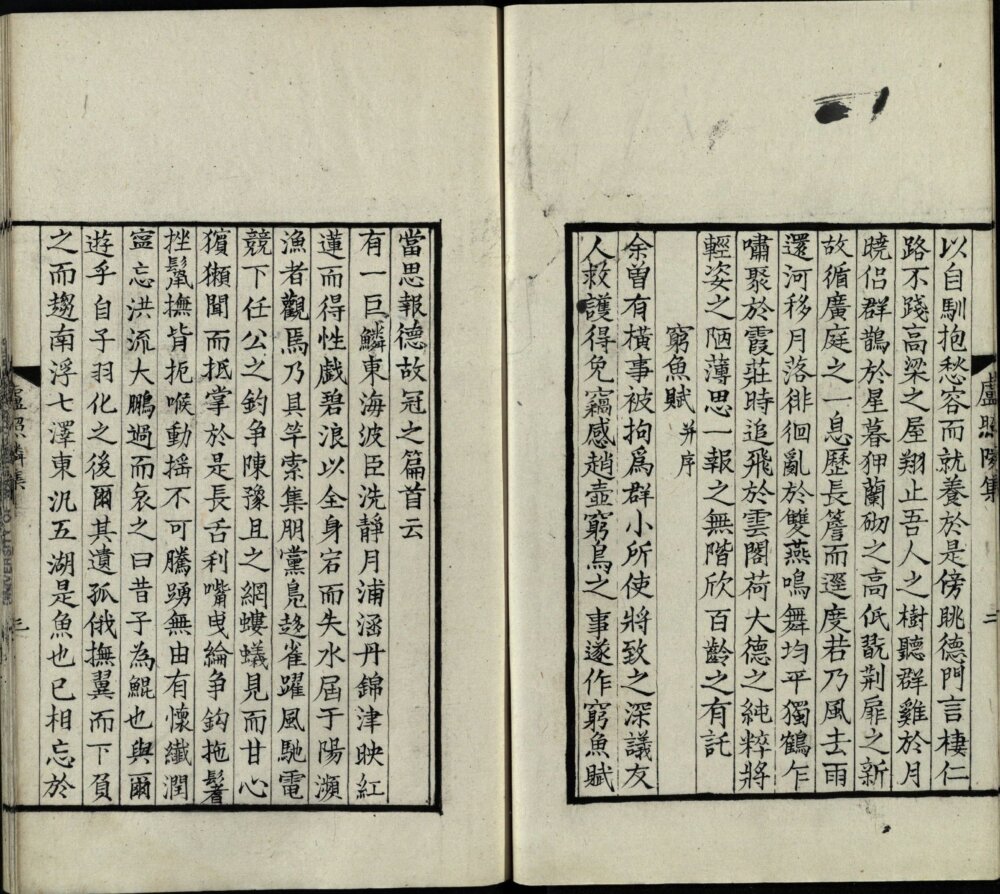 以自馴抱愁容而就養於是傍眺德門言棲仁
路不踐高梁之屋翔止吾人之樹聽群雞於月
曉侶群鵲於星暮狎蘭砌之高低翫荆扉之新
故循廣庭之一息歷長簷而遥度若乃風去雨
還河移月落徘徊亂於雙燕鳴舞均乎獨鶴乍
嘯聚於霞莊時追飛於雲閣荷大德之純粹將
輕姿之陋薄思一報之無階欣百齡之有託
窮魚賦并序
余曽有橫事被拘爲群小所使將致之深議友
人救護得免竊感趙壹窮鳥之事遂作窮魚賦
盧照隣集 二
當思報德故冠之篇首云
有一巨鱗東海波臣洗靜月浦涵丹錦津映紅
蓮而得性戲碧浪以全身宕而失水屆于陽瀕
漁者觀焉乃具竿索集朋黨鳧趍雀躍風馳電
競下任公之釣争陳豫且之網螻蟻見而甘心
獱獺聞而抵掌於是長舌利嘴曳綸争鈎拖鬐
挫鬣撫背扼喉動搖不可騰踴無由有懷纖潤
寍忘洪流大鵬過而哀之曰昔子為鯤也與爾
遊乎自子羽化之後爾其遺孤俄撫翼而下負
之而趨南浮七澤東汎五湖是魚也已相忘於
盧照隣集 三